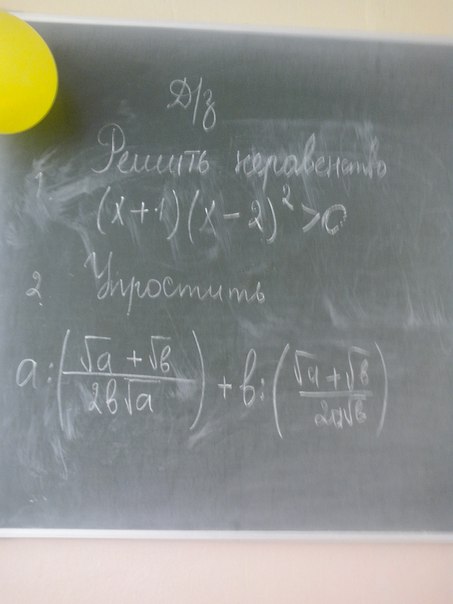 Д/з
1 Решить неравенство
(x+1)(x-2)²>0
2 Упростить
a:((√a+√b)/(2b√a))+b:((√a+√b)/(2a√b))